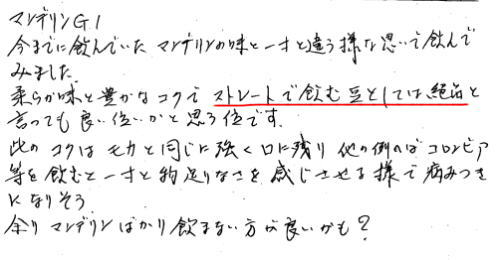 マンデリンG1
今までに飲んでいた マンデリンの味と一寸と違う様な思いで飲んで
みました。
柔らか味と豊かなコクで ストレートで飲む豆としては、絶品と
言っても良い位いかと思う位です。
此の コクは モカと同じに強く口に残り 他の例のば コロンビア
等を飲むと一寸と物足りなさを感じさせる様で病みつき
になりそう
余り マンデリンばかり飲まない方が良いかも?